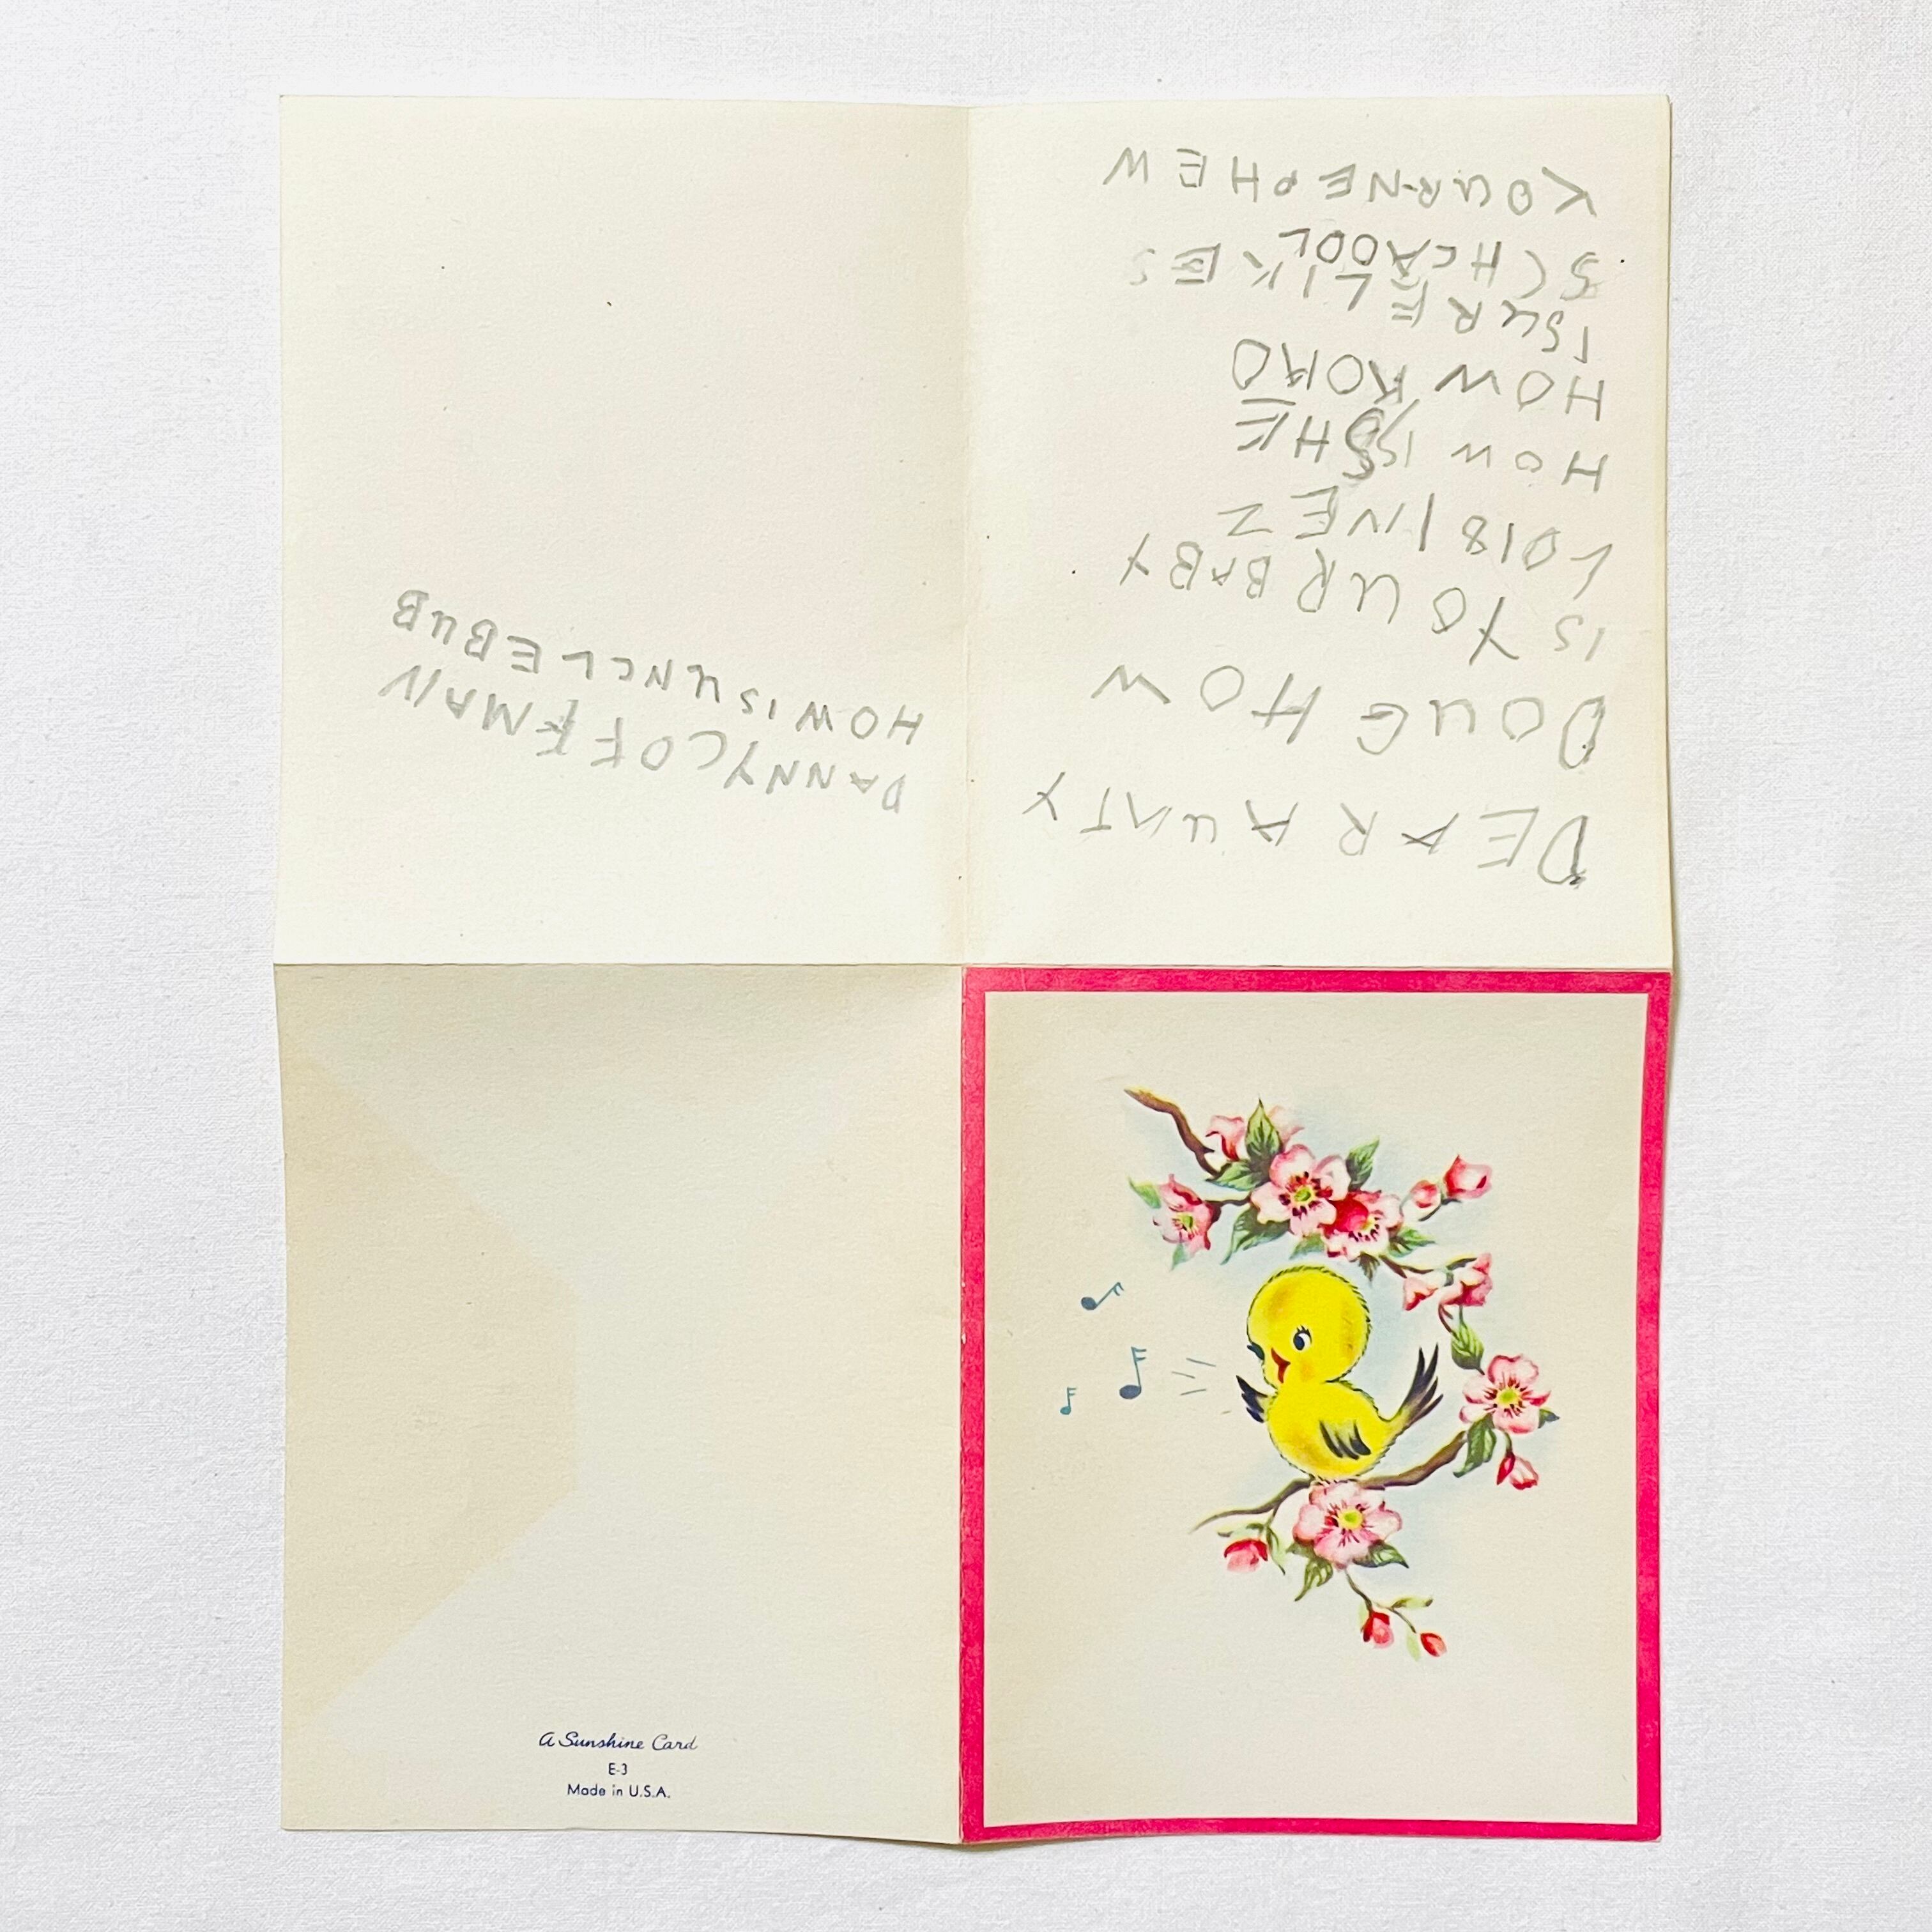 DEAR AUNTY
DOUG HOW
IS YOUR BABY
LOIS INEZ
HOW IS SHE
HOW
I SURE LIKES
SCHOOL
YOUR NEPHEW
DANNY COFFMAN
HOW IS UNCLE BUB
A Sunshine Card
E-3
Made in U.S.A.